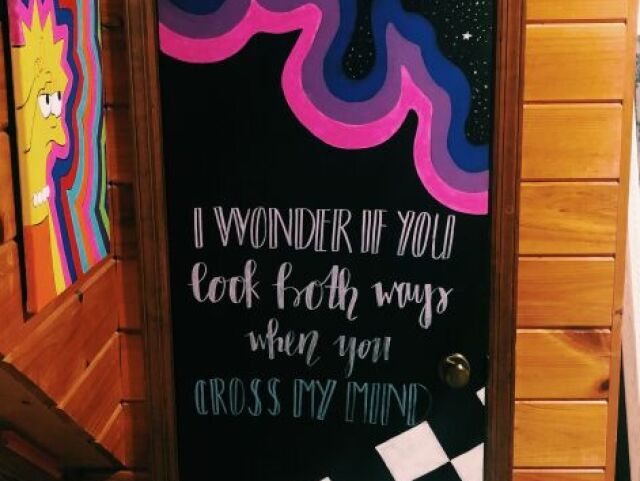 I WONDER IF YOU
look both ways
when you
CROSS MY MIND